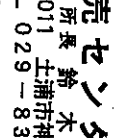 売センタ
所長 鈴木
011 土浦市神
-029-83